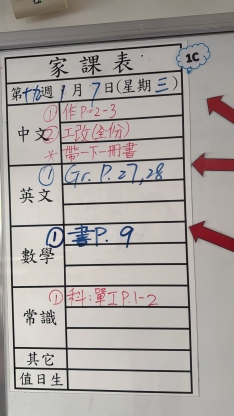 家課表
1C
第十九週 1月7日(星期三)
中文
① 作P.2-3
② 工改(全份)
* 帶一下一冊書
英文
① Gr. P.27,28
數學
① 書P.9
常識
① 科:單I P.1-2
其它
值日生